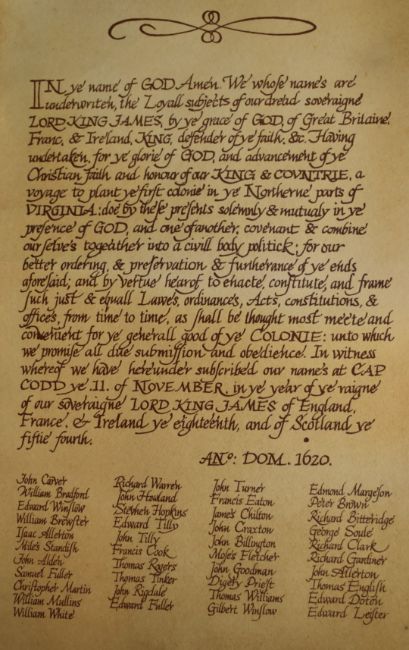 IN ye name of GOD Amen. We whose names are
underwriten, the Loyall subjects of our dread soveraigne
LORD KING JAMES, by ye grace of GOD, of Great Britaine,
Franc, & Ireland, KING, defender of ye faith, &c. Having
undertaken, for ye glorie of GOD, and advancement of ye
Christian faith and honour of our KING & COVNTRIE, a
voyage to plant ye first colonie in ye Northerne parts of
VIRGINIA: doe by these presents solemnly & mutualy in ye
presence of GOD, and one of another, covenant & combine
our selve's togeather into a civill body politick; for our
better ordering, & preservation & furtherance of ye ends
aforesaid; and by vertue hearof to enacte, constitute, and frame
such just & equall Lawes, ordinances, Acts, constitutions, &
offices, from time to time, as shall be thought most meete and
convenient for ye generall good of ye COLONIE: unto which
we promise all due submission and obedience. In witness
whereof we have hereunder subscribed our name's at CAP
CODD ye .11. of NOVEMBER, in ye year of ye raigne
of our soveraigne LORD KING JAMES of England,
France, & Ireland ye eighteenth, and of Scotland ye
fiftie fourth.
ANº: DOM. 1620.
John Carver
William Bradford
Edward Winslow
William Brewster
Isaac Allerton
Miles Standish
John Alden
Samuel Fuller
Christopher Martin
William Mullins
William White
Richard Warren
John Howland
Stephen Hopkins
Edward Tilly
John Tilly
Francis Cook
Thomas Rogers
Thomas Tinker
John Rigdale
Edward Fuller
John Turner
Francis Eaton
James Chilton
John Craxton
John Billington
Moses Fletcher
John Goodman
Digery Priest
Thomas Williams
Gilbert Winslow
Edmond Margeson
Peter Brown
Richard Bitteridge
George Soule
Richard Clark
Richard Gardiner
John Allerton
Thomas English
Edward Doten
Edward Leister